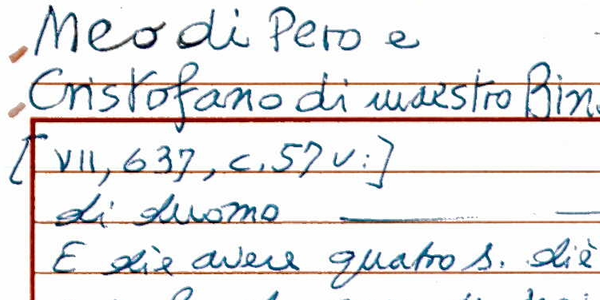 Meo di Pero e
Cristofano di maestro Bin
[VII, 637, c. 57 v:]
di duomo
E diè avere quatro s. diè